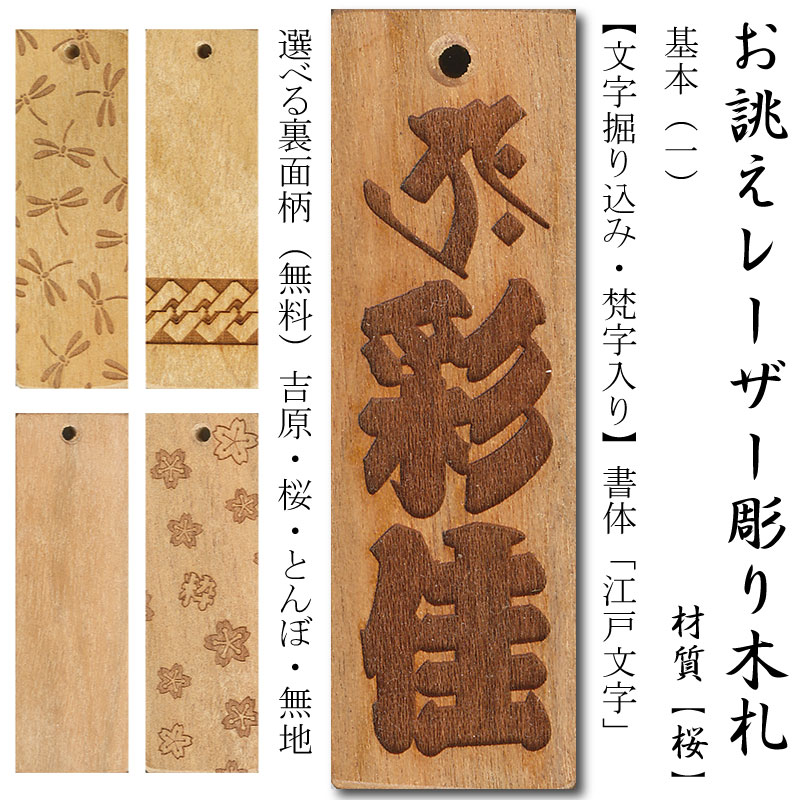 お誂えレーザー彫り木札
材質【桜】
基本（一）
【文字掘り込み・梵字入り】書体「江戸文字」
彩佳
選べる裏面柄（無料）吉原・桜・とんぼ・無地